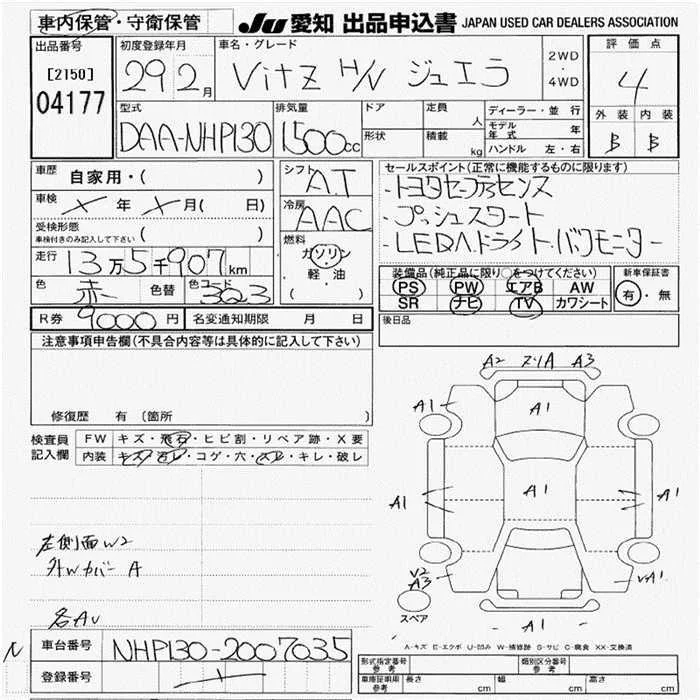 車内保管・守衛保管
JU 愛知 出品申込書 JAPAN USED CAR DEALERS ASSOCIATION
出品番号
[2150]
04177
初度登録年月
29 2月
車名・グレード
Vitz H/N ジュエラ
2WD
・
4WD
評価点
4
外装 内装
B B
型式
DAA-NHP130
排気量
1500cc
ドア
形状
定員
人
積載
kg
ディーラー・並行
モデル年式 年
ハンドル 左・右
車歴
自家用・( )
車検
年 月( 日)
受検形態
車検付きのみ記入して下さい ( )
走行
13万5千907km
色
赤
色替
色コード
3Q3
シフト
AT
冷房
AAC
燃料
ガソリン
・
軽・油
( )
セールスポイント(正常に機能するものに限ります)
・トヨタセーフティセンス
・プッシュスタート
・LEDヘッドライト・バックモニター
装備品(純正品に限り○をつけてください)
PS PW エアB AW
SR ナビ TV カワシート
新車保証書
有・無
R券 9000円
名変通知期限 月 日
後日品
注意事項申告欄(不具合内容等は具体的に記入して下さい)
修復歴 有 (箇所
検査員
記入欄
FW キズ・飛石・ヒビ割・リペア跡・X要
内装 キズ・ヨゴレ・コゲ・穴・スレ・キレ・破レ
左側面W2
外Wカバー A
各AU
A2 ヌリA A3
A1
A1
A1
A1
A1
V2
A3
VA1
A1
スペア
A-キズ E-エクボ U-凹み W-補修跡 S-サビ C-腐食 XX-交換済
N
車台番号
NHP130-2007035
登録番号
形式指定番号
参考
類別区分番号
参考
車庫証明用
参考
長さ cm
幅 cm
高さ cm